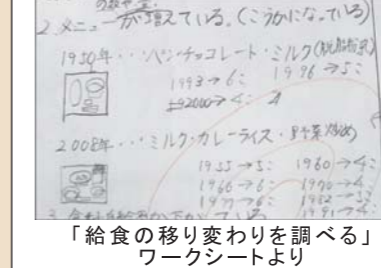 の数や量
2 メニューが増えている。(ごうかになっている)
1950年・・・パン・チョコレート・ミルク(脱脂粉乳)
1993→6: 1996→5:
2000→4: 4
2008年・・・ミルク・カレーライス・野菜炒め
1955→5: 1960→4:
1966→6: 1970→4:
1977→6: 1982→5:
1991→4:
「給食の移り変わりを調べる」
ワークシートより